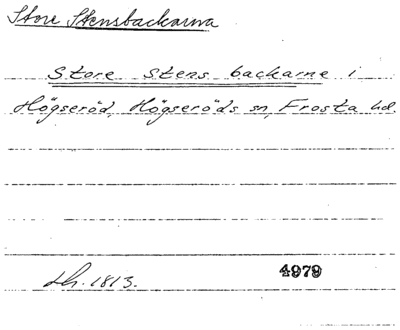 Store Stensbackarna
Store Stens backarne i
Högseröd, Högseröds sn, Frosta hd.
Lh. 1813.
4979